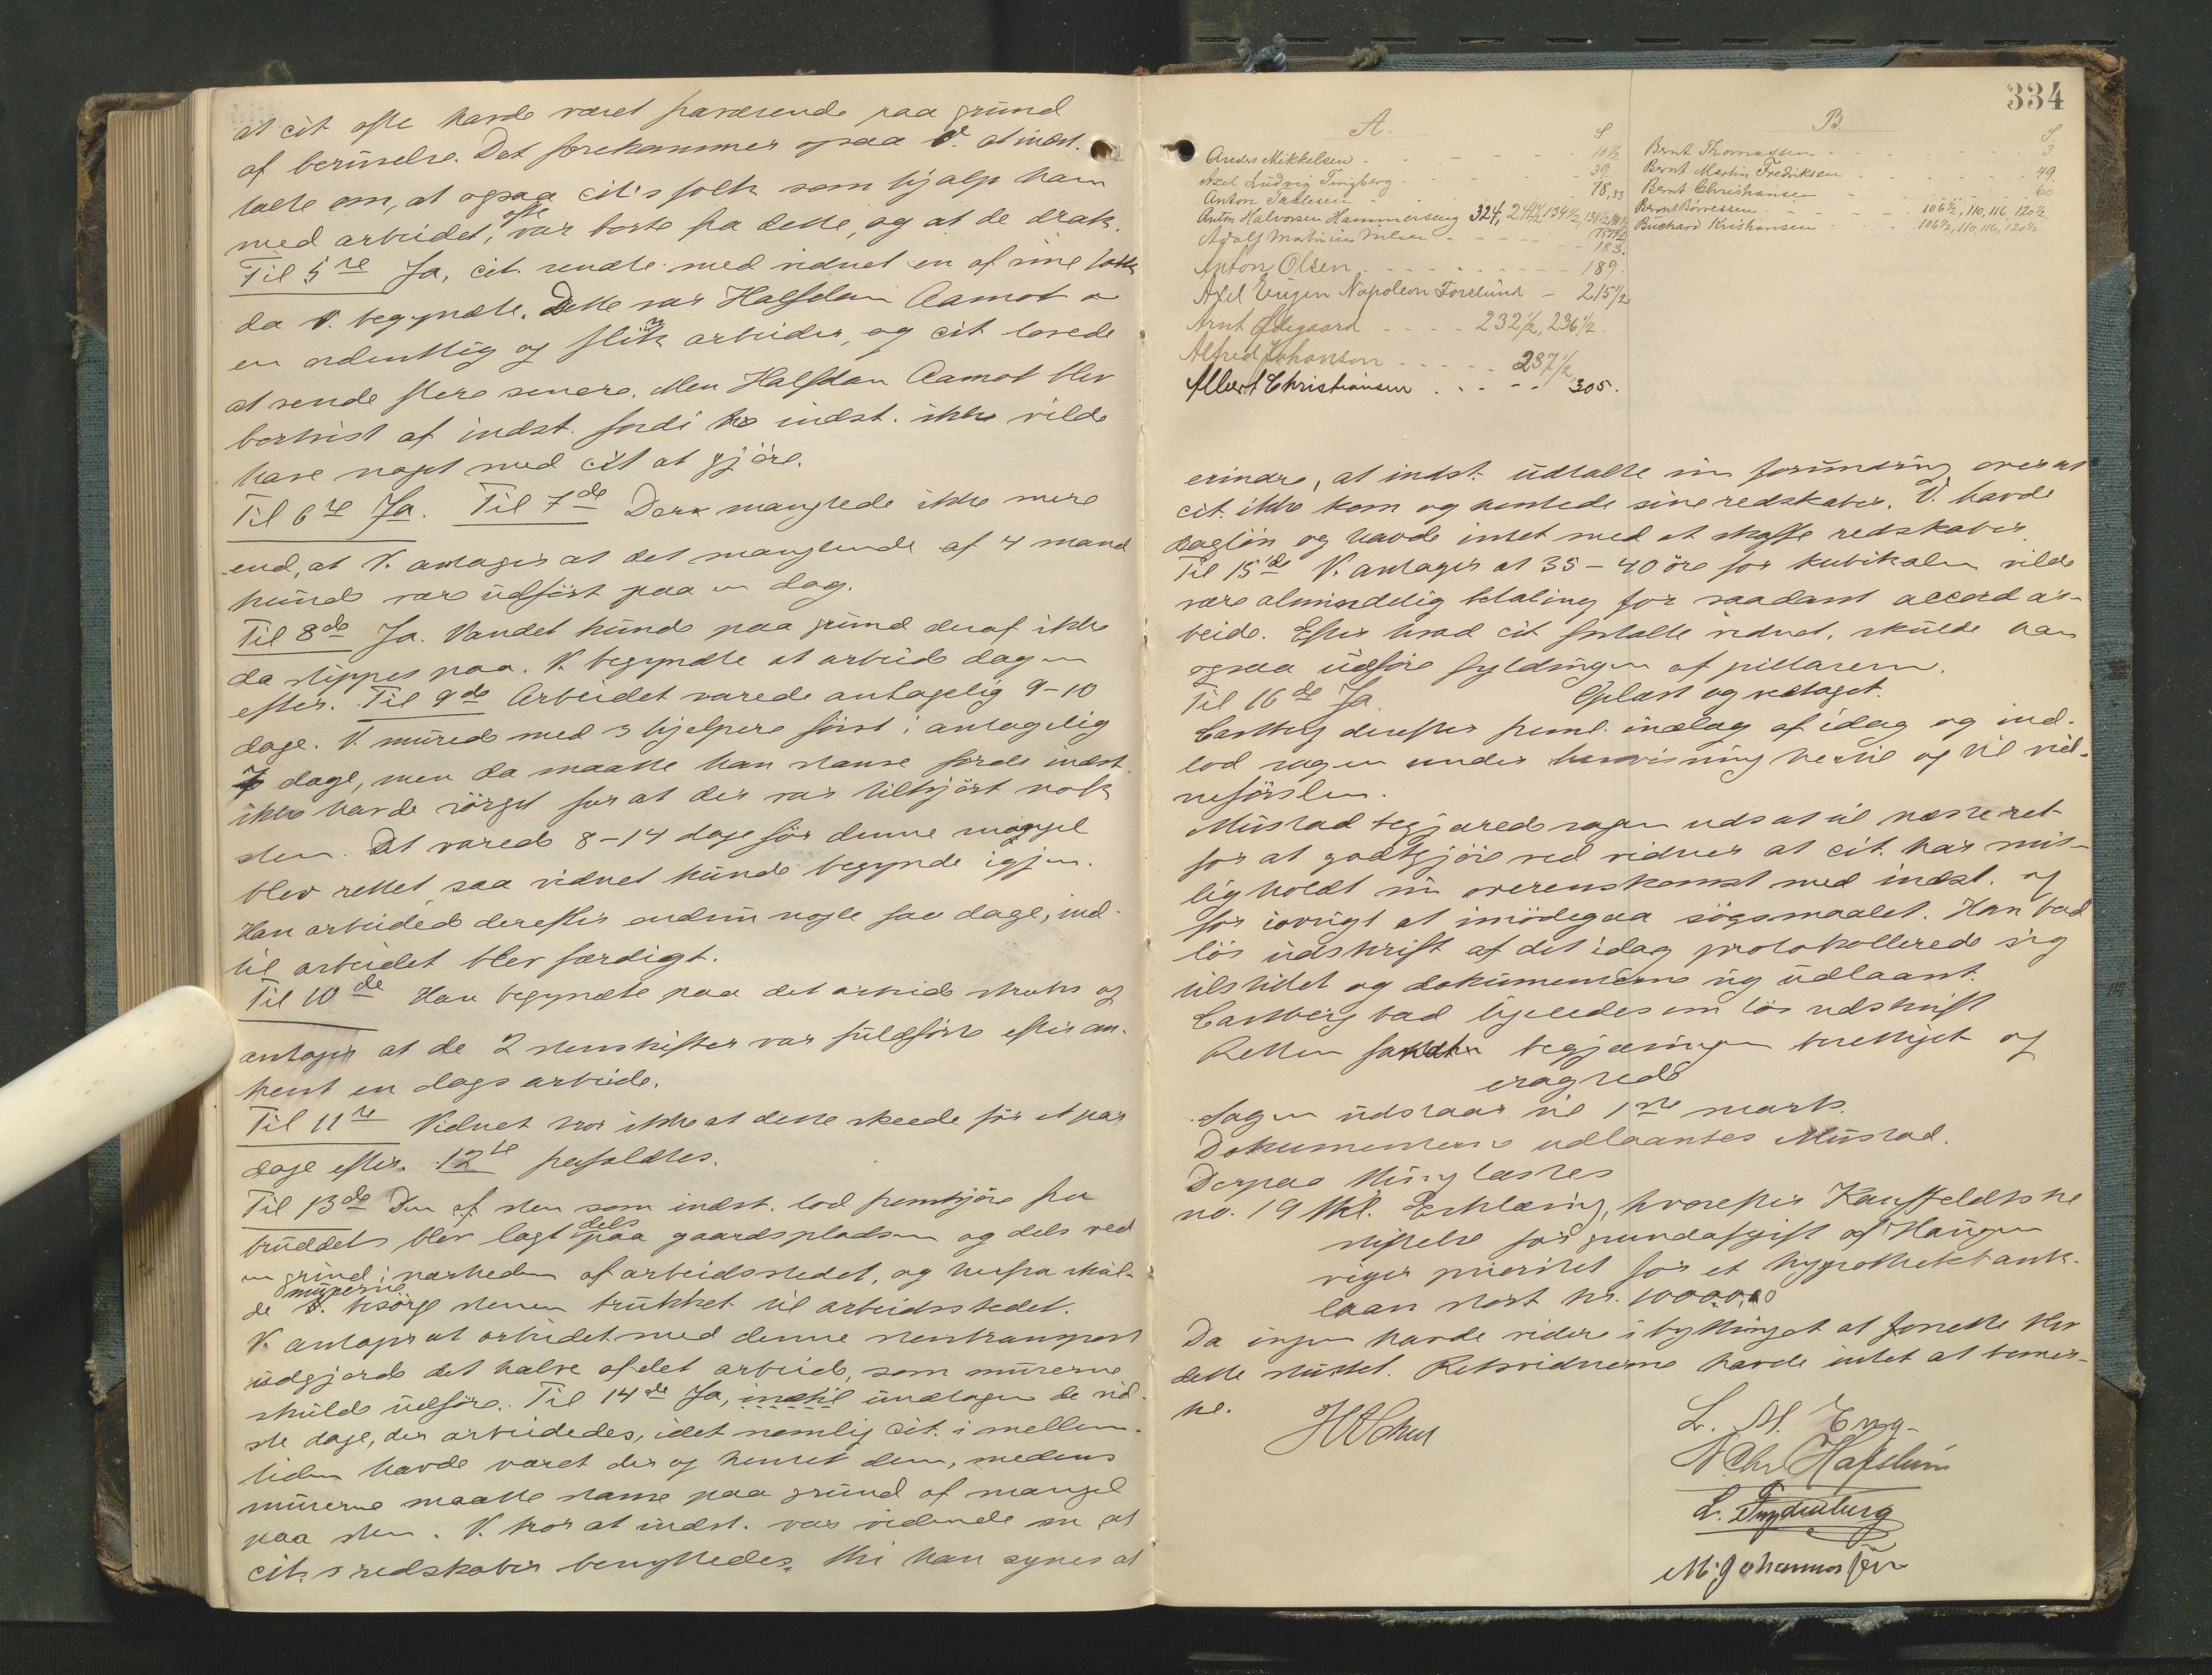 at cit. ofte havde været fraværende paa grund
af beruselse. Det forekommer ogsaa V. at indst.
talte om, at ogsaa cit's folk som hjalp ham
med arbeidet, ofte var borte fra dette, og at de drak.
Til 5te Ja, cit. sendte med vidnet en af sine folk
da V. begyndte. Dette var Halfdan Aamot
en ordentlig og flink arbeider, og cit lovede
at sende flere senere. Men Halfdan Aamot blev
bortvist af indst. fordi indst. ikke vilde
have noget med cit at gjöre.
Til 6te Ja. Til 7de Der manglede ikke mere
end, at V. antager at det manglende af 4 mand
kunde være udfört paa en dag.
Til 8de Ja. Vandet kunde paa grund deraf ikke
da slippes paa. V. begyndte at arbeide dagen
efter. Til 9de Arbeidet varede antagelig 9-10
dage. V. murede med 3 hjelpere först i antagelig
dage, men da maatte han stanse fordi indst.
ikke havde sörget for at der var tilkjört nok
sten. Det varede 8-14 dage för denne mangel
blev rettet saa vidnet kunde begynde igjen.
Han arbeided derefter endnu nogle faa dage, ind-
til arbeidet blev færdigt.
Til 10de Han begyndte paa det arbeide straks og
antager at de 2 stenkister var fuldförte efter om-
trent en dags arbeide.
Til 11te Vidnet tror ikke at dette skeede för et par
dage efter. 12te frafaldtes.
Til 13de Den af sten som indst. lod fremkjöre fra
bruddet blev lagt dels paa gaardspladsen og dels ved
en grind i nærheden af arbeidsstedet, og herfra skul-
de murerne besörge stenen trukket til arbeidsstedet.
V. antager at arbeidet med denne stentransport
udgjorde det halve af det arbeide, som murerne
skulde udföre. Til 14de Ja, indtil undtagen de sid-
ste dage, der arbeidedes, idet nemlig cit. i mellem-
tiden havde været der og hentet dem, medens
murerne maatte stanse paa grund af mangel
paa sten. V. tror at indst. var vidende om at
cit.s redskaber benyttedes, thi han synes at
334
A.
S
Anders Mikkelsen - 10½
Axel Ludvig Tingberg - 39.
Anton 78, 83
Anton Halvorsen Hammerseng 324, 244½, 134½, 138½
Adolf Martinius Nilsen - 183.
Anton Olsen - 189.
Axel Eugen Napoleon Forslund - 215½
Arnt Ødegaard - 232½, 236½.
Alfred Johansen - 237½
Albert Christiansen - 305.
B.
S.
Bernt Thomassen - 3.
Bernt Martin Fredriksen - 49.
Bernt Christiansen - 60
Bernt Børressen - 106½, 110, 116, 120½.
Buchard Kristiansen - 106½, 110, 116, 120½
erindre, at indst. udtalte sin forundring over at
cit. ikke kom og hentede sine redskaber. V. havde
daglön og havde intet med at skaffe redskaber.
Til 15de V. antager at 35-40 öre for kubikalen vilde
være almindelig betaling for saadant accordar-
beide. Efter hvad cit fortalte vidnet, skulde han
ogsaa udföre fyldingen af pillarerne.
Til 16de Ja. Oplæst og vedtaget.
Castberg derefter freml. indlæg af idag og ind-
lod sagen under henvisning hertil og til vid-
neförslen.
Mustad begjærede sagen udsat til næste ret
for at godtgjöre ved vidner at cit. har mis-
ligholdt sin overenskomst med indst. og
for iövrigt at imödegaa sögsmaalet. Han bad
lös udskrift af det idag protokollerede sig
tilstillet og dokumenterne sig udlaant.
Castberg bad ligeledes om lös udskrift
Retten fandt begjæringen berettiget og
eragtede
Sagen udstaar til 1ste mark.
Dokumenterne udlaantes Mustad.
Derpaa thinglæstes
no. 19 Skl. Erklæring, hvorefter Kauffeldtske
stiftelse for grundafgift af Haugen
viger prioritet for et hypothekbank-
laan stort kr. 10000,00
Da ingen havde videre i bythinget at forrette blev
dette sluttet. Retsvidnerne havde intet at bemer-
ke.
L. M. Eng
N Chr Hafslund
L. Frydenberg
M. Johannessen